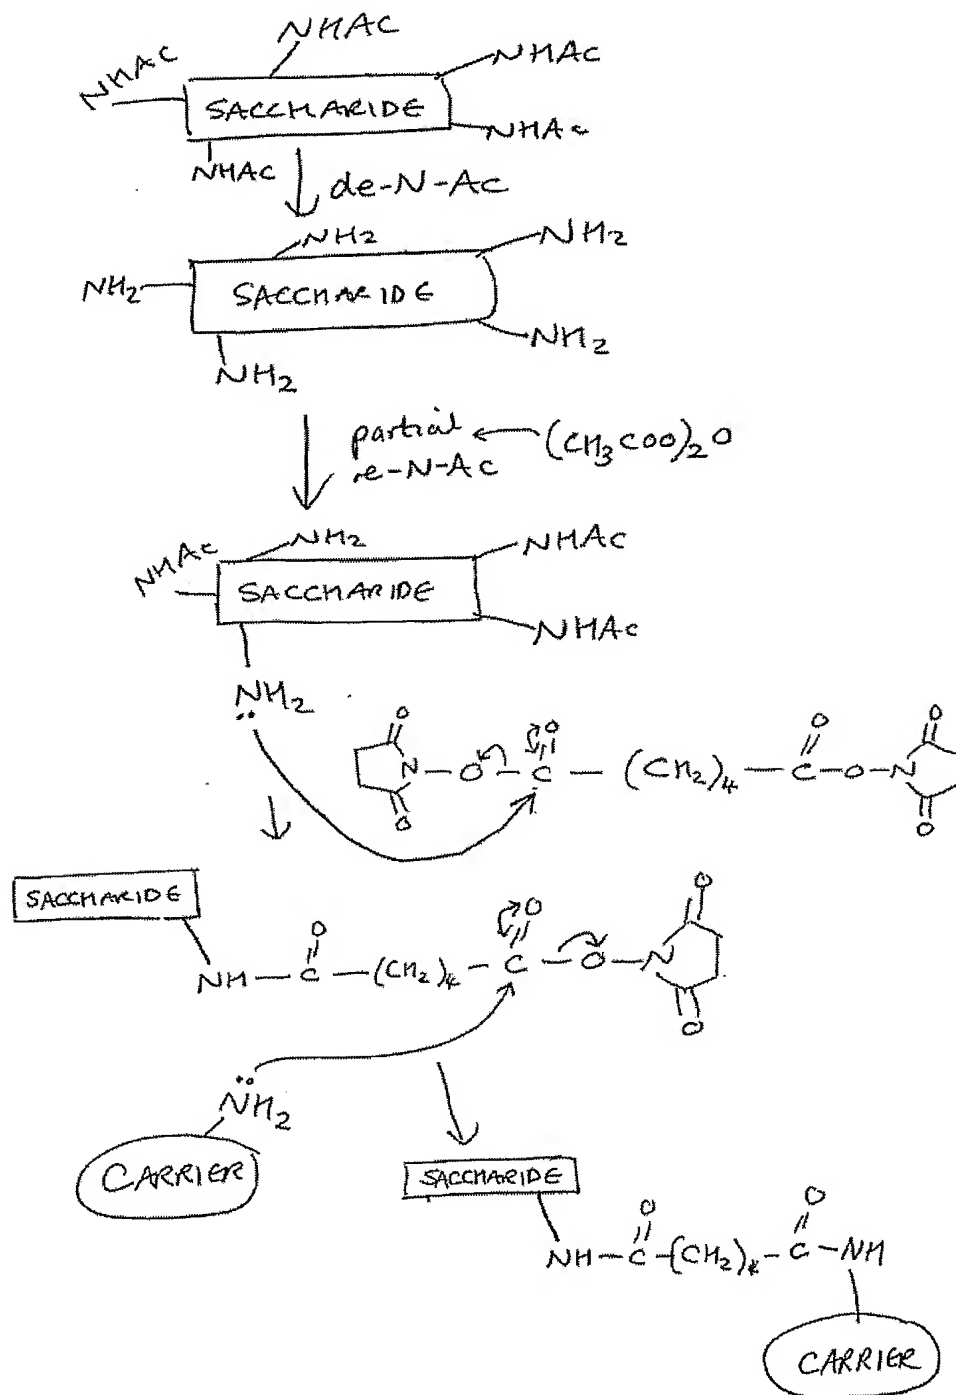 NHAC
NHAC
NHAC
SACCHARIDE
NHAC
NHAC
de-N-AC
NH2
NH2
NH2
SACCHARIDE
NH2
NH2
partial ← (CH3COO)2O
re-N-AC
NHAC
NH2
NHAC
SACCHARIDE
NHAC
NH2
O O O O
N-O-C-(CH2)4-C-O-N
O O
SACCHARIDE
O O O
NH-C-(CH2)4-C-O-N
O
NH2
CARRIER
SACCHARIDE
O O
NH-C-(CH2)4-C-NH
CARRIER